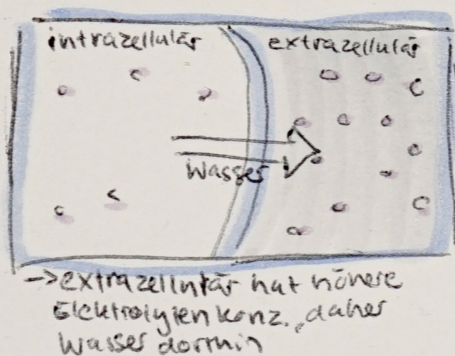 intrazellulär
extrazellulär
Wasser
-> extrazellulär hat höhere
Elektrolyten konz., daher
Wasser dorthin